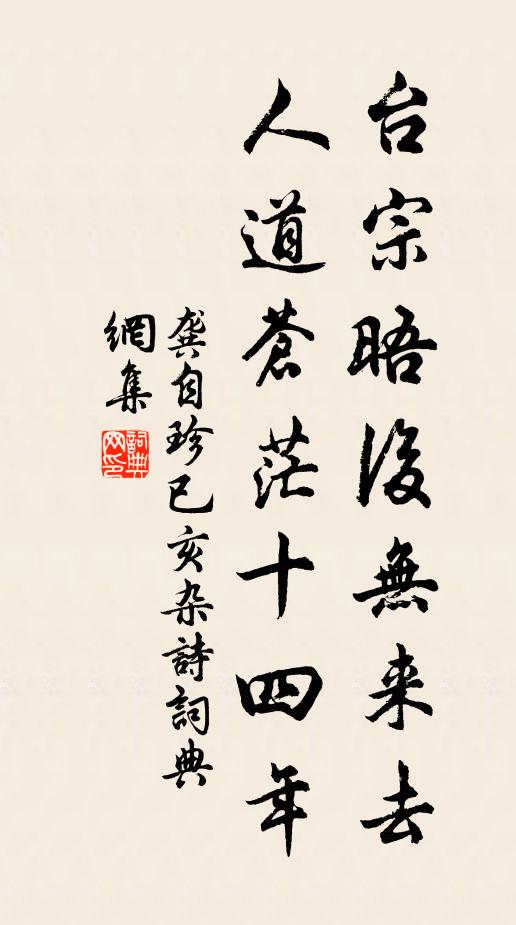 台宗晤後無来去
人道蒼茫十四年
龔自珍已亥杂詩詞典
網集
詞典
网印